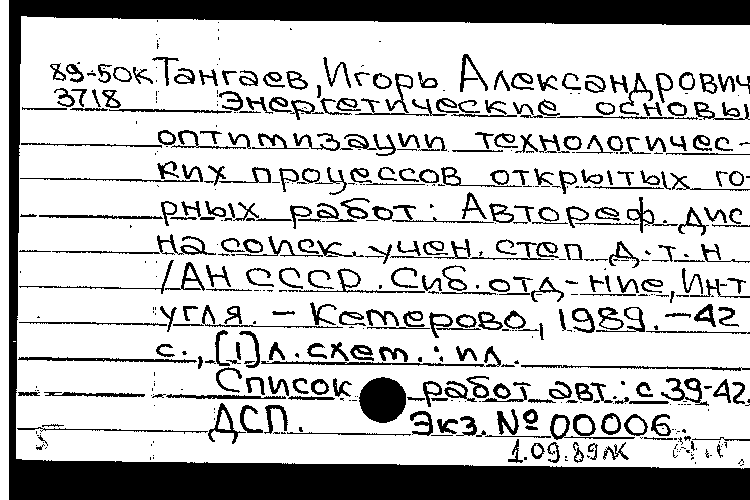 89-50К Тангаев, Игорь Александрович
3718 Энергетические основы
оптимизации технологичес-
ких процессов открытых го-
рных работ: Автореф. дис
на соиск. учен. степ д.т.н
/АН СССР. Сиб. отд-ние, Ин-т
угля. - Кемерово, 1989. - 42
с., [1] л. схем. : ил.
Список работ авт.: с. 39-42.
ДСП. Экз. № 00006.
5 1.09.89